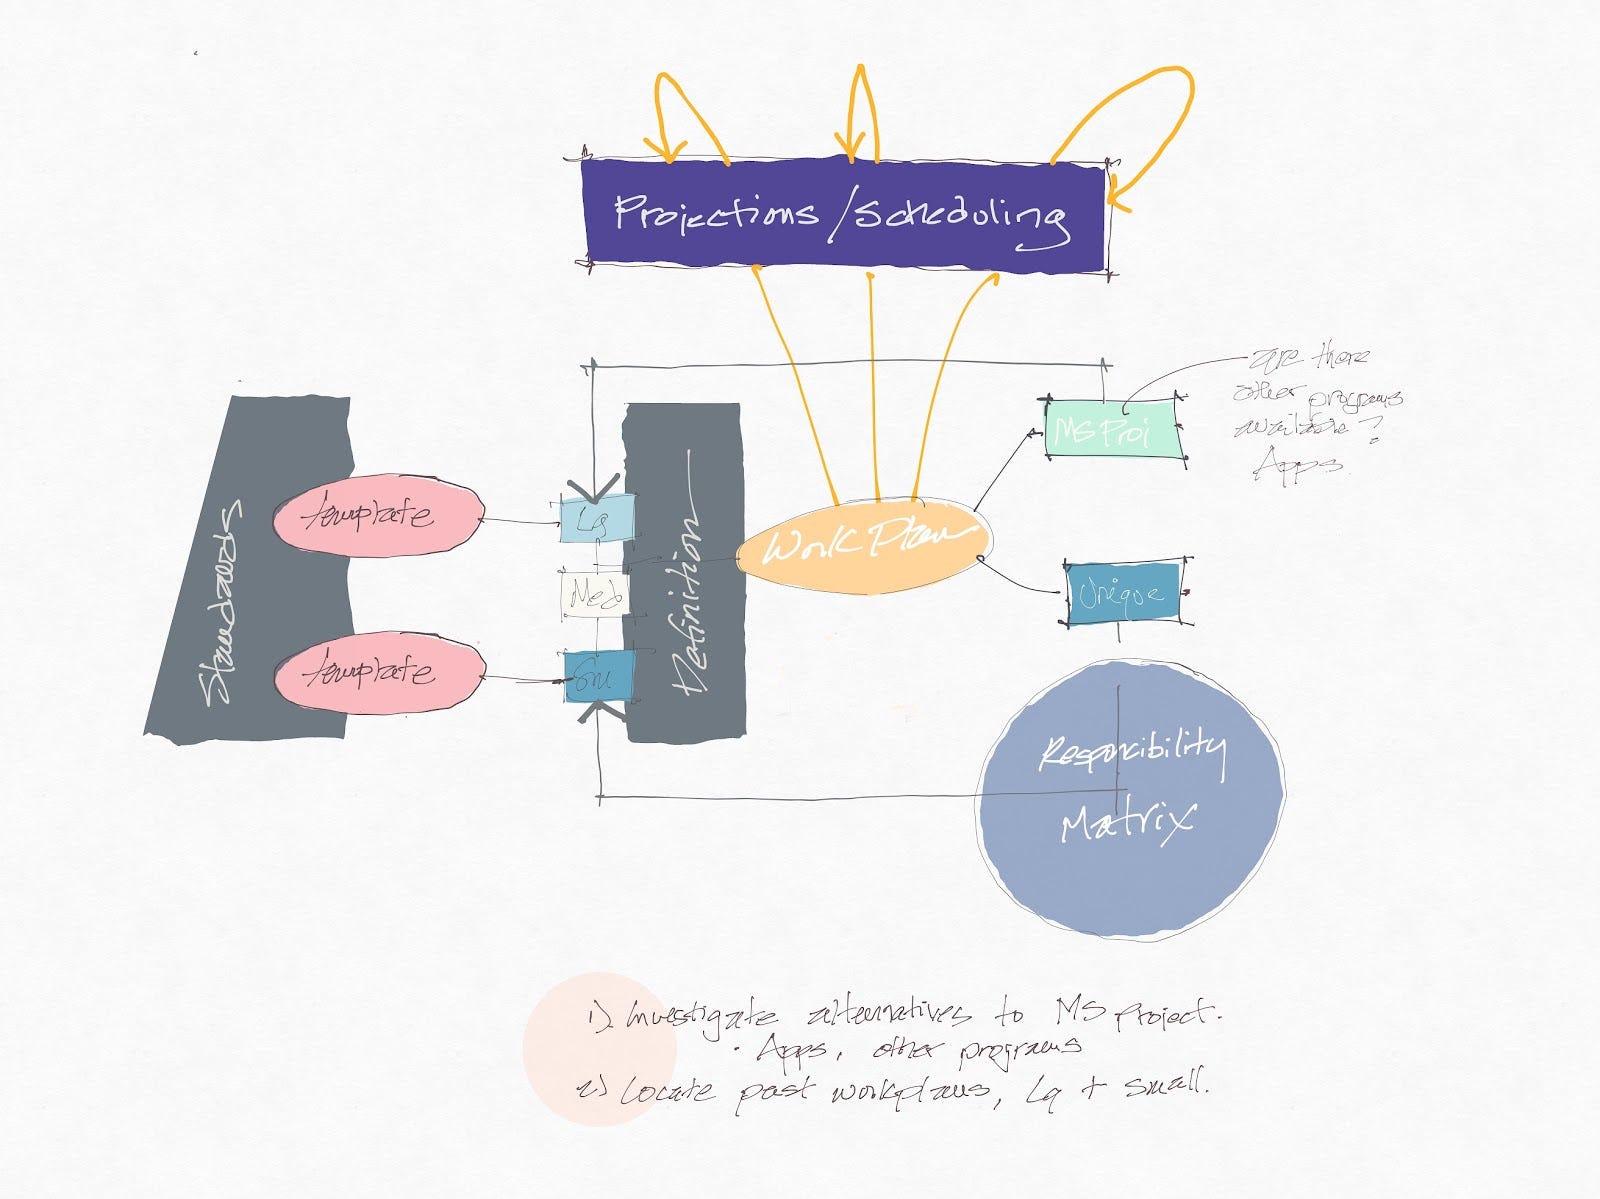 Projections/scheduling
are there
other programs
available?
Apps.
MS Proj
template
Lg
Work Plan
Standards
Definition
Med
Unique
template
Sm
Responcibility
Matrix
1). Investigate alternatives to MS Project.
· Apps, other programs
2) Locate past workplans, Lg + small.